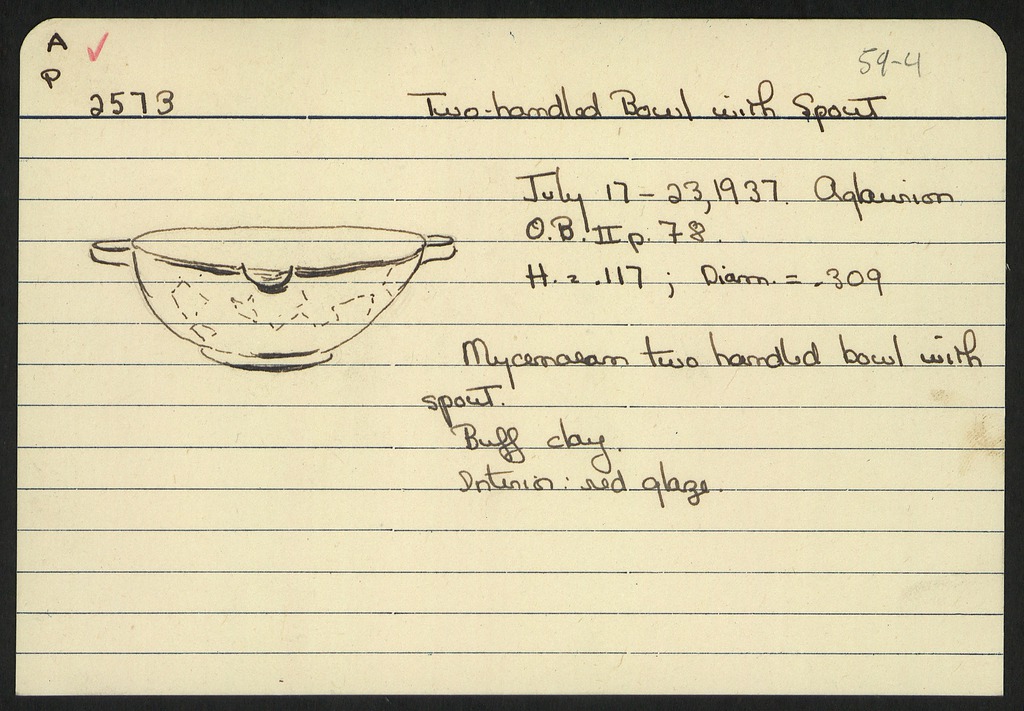 A ✓
P
2573
59-4
Two-handled Bowl with Spout
July 17-23, 1937. Aglaurion
O.B. II p. 78.
H. = .117 ; Diam. = .309
Mycenaean two handled bowl with
spout.
Buff clay.
Interior: red glaze.